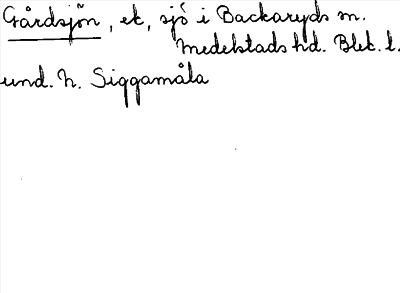 Gårdsjön, ek, sjö i Backaryds sn.
Medelstads hd. Blek. l.
und. h. Siggamåla